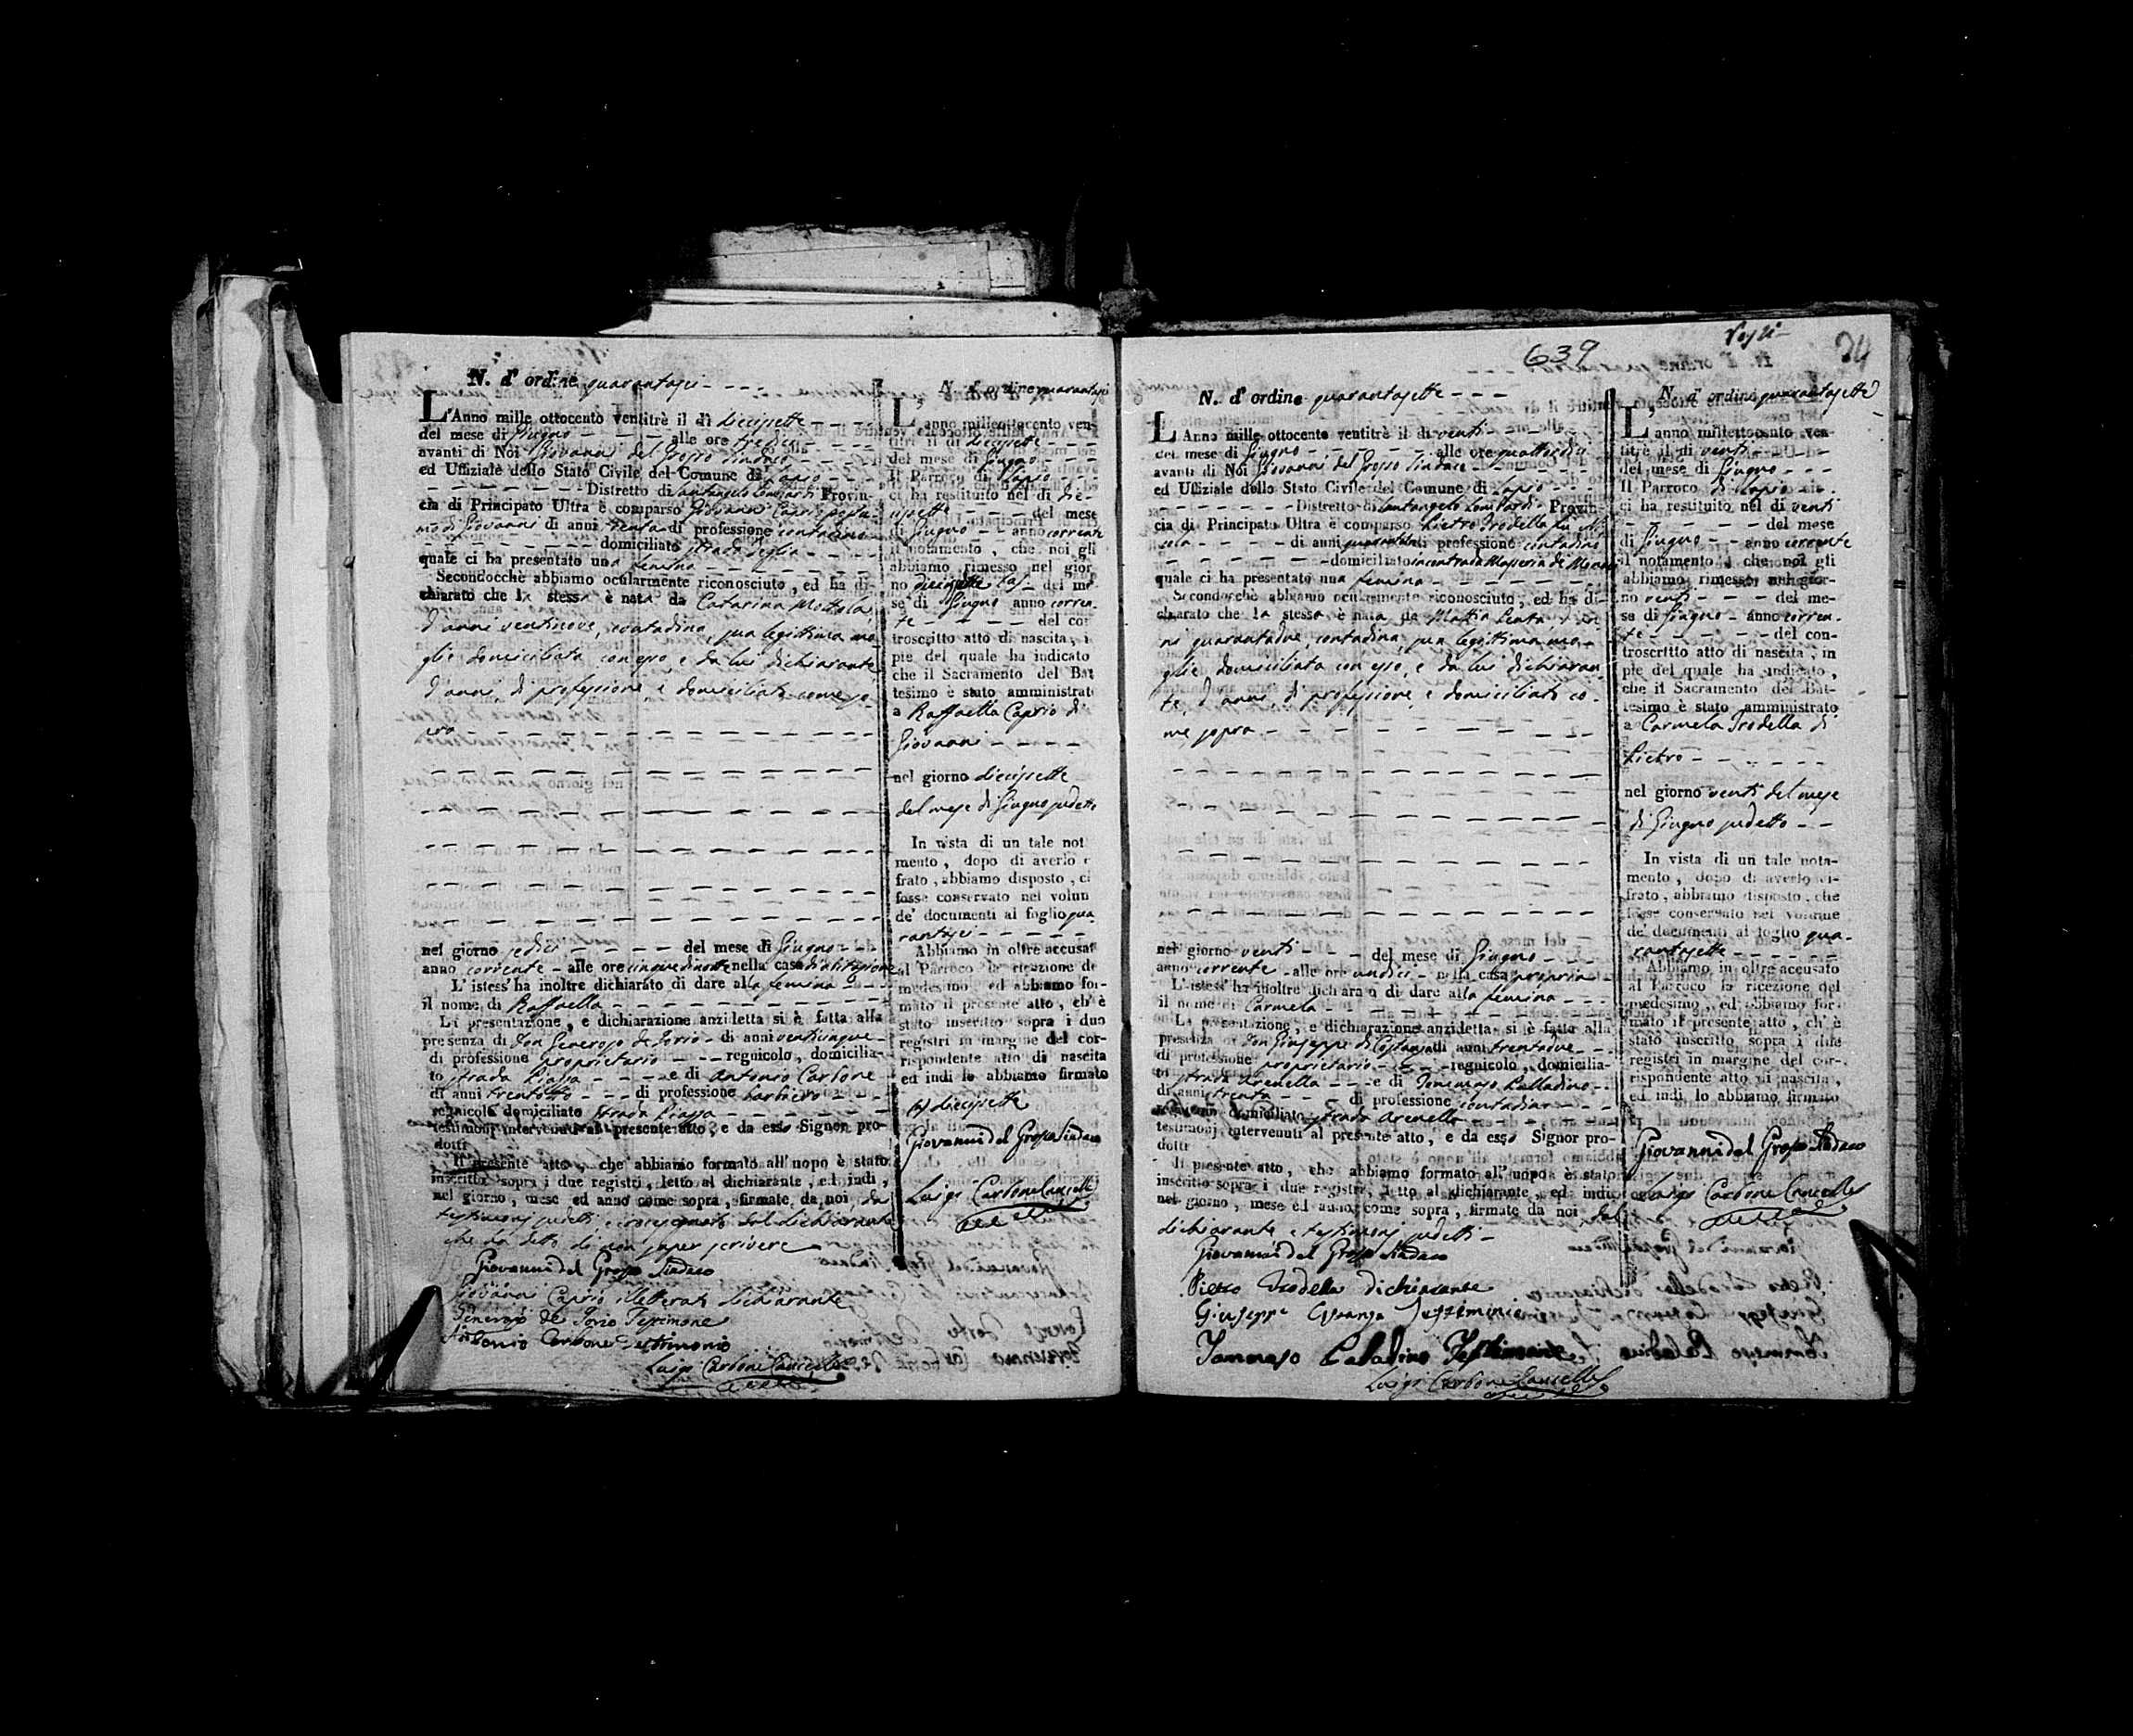 N. d' ordine quarantasei
L'Anno mille ottocento ventitrè il dì diecisette
del mese di Giugno alle ore tredici
avanti di Noi Giovanni del Grosso Sindaco
ed Uffiziale dello Stato Civile del Comune di Lapio
Distretto di Santangelo Lombardi Provin-
cia di Principato Ultra è comparso Giovanni Caprio postu-
mo di Giovanni di anni trenta di professione contadino
domiciliato strada
quale ci ha presentato una femina
Secondocchè abbiamo ocularmente riconosciuto, ed ha di-
chiarato che la stessa è nata da Catarina Mottola,
d'anni ventinove, contadina, sua legittima mo-
glie domiciliata con esso, e da lui dichiarante
d'anni, di professione, e domiciliato come so-
pra
nel giorno sedici del mese di Giugno
anno corrente alle ore cinque di notte nella casa di abitazione
L' istess' ha inoltre dichiarato di dare alla femina
il nome di Raffaella
La presentazione, e dichiarazione anzidetta si è fatta alla
presenza di Don Generoso de Iorio di anni venticinque
di professione proprietario regnicolo, domicilia-
to strada Piazza e di Antonio Carbone
di anni trentotto di professione barbiero
regnicolo domiciliato strada Piazza
testimonj intervenuti al presente atto, e da esso Signor pro-
dotti
Il presente atto, che abbiamo formato all' uopo è stato
inscritto sopra i due registri, letto al dichiarante, ed indi,
nel giorno, mese ed anno come sopra, firmato da noi, da
testimonj sudetti, e crocesegnato dal dichiarante
che ha detto di non saper scrivere
Giovanni del Grosso Sindaco
Giovanni Caprio illetterato dichiarante
Generoso de Iorio Testimone
Antonio Carbone Testimonio
Luigi Carbone Cancell
N. d' ordine quarantasei
L' anno milleottocento ven-
titrè il dì diecisette
del mese di Giugno
Il Parroco di Lapio
ci ha restituito nel dì die-
cisette del mese
di Giugno anno corrente
il notamento, che noi gli
abbiamo rimesso nel gior-
no diecisette del me
se di Giugno anno corren-
te del con
troscritto atto di nascita, i
piè del quale ha indicato
che il Sacramento del Bat
tesimo è stato amministrat
a Raffaella Caprio di
Giovanni
nel giorno diecisette
del mese di Giugno sudetto
In vista di un tale not
mento, dopo di averlo c
frato, abbiamo disposto, c
fosse conservato nel volum
de' documenti al foglio qua
rantasei
Abbiamo in oltre accusat
al Parroco la ricezione de
medesimo, ed abbiamo for-
mato il presente atto, ch' è
stato inscritto sopra i due
registri in margine del cor-
rispondente atto di nascita
ed indi lo abbiamo firmato
diecisette
Giovanni del Grosso Sindaco
Luigi Carbone Cancell
639
24
N. d' ordine quarantasette
L' Anno mille ottocento ventitrè il dì venti
del mese di Giugno alle ore quattordici
avanti di Noi Giovanni del Grosso Sindaco
ed Uffiziale dello Stato Civile del Comune di Lapio
Distretto di Santangelo Lombardi Provin-
cia di Principato Ultra è comparso Pietro Trodella fu
di anni di professione contadino
domiciliato in contrada Masseria di
quale ci ha presentato una femina
Secondocchè abbiamo ocularmente riconosciuto, ed ha di-
chiarato che la stessa è nata da Mattia
ni quarantadue, contadina, sua legittima mo-
glie, domiciliata con esso, e da lui dichiaran-
te, d'anni, di professione, e domiciliato co-
me sopra
nel giorno venti del mese di Giugno
anno corrente alle ore undici nella casa propria
L' istess' ha inoltre dichiarato di dare alla femina
il nome di Carmela
La presentazione, e dichiarazione anzidetta si è fatta alla
presenza di Don Giuseppe di anni trentadue
di professione proprietario regnicolo, domicilia-
to strada Arenella e di Tommaso Palladino
di anni trenta di professione contadino
regnicolo domiciliato strada Arenella
testimonj intervenuti al presente atto, e da esso Signor pro-
dotti
Il presente atto, che abbiamo formato all' uopo è stato
inscritto sopra i due registri, letto al dichiarante, ed indi
nel giorno, mese ed anno come sopra, firmato da noi dal
dichiarante e testimonj sudetti
Giovanni del Grosso Sindaco
Pietro Trodella dichiarante
Giuseppe Testimonio
Tommaso Paladino Testimonio
Luigi Carbone Cancell
N. d' ordine quarantasette
L' anno milleottocento ven-
titrè il dì venti
del mese di Giugno
Il Parroco di Lapio
ci ha restituito nel dì venti
del mese
di Giugno anno corrente
il notamento, che noi gli
abbiamo rimesso nel gior-
no venti del me-
se di Giugno anno corren-
te del con-
troscritto atto di nascita, in
piè del quale ha indicato,
che il Sacramento del Bat-
tesimo è stato amministrato
a Carmela Trodella di
Pietro
nel giorno venti del mese
di Giugno sudetto
In vista di un tale nota-
mento, dopo di averlo ci-
frato, abbiamo disposto, che
fosse conservato nel volume
de' documenti al foglio qua-
rantasette
Abbiamo in oltre accusato
al Parroco la ricezione del
medesimo, ed abbiamo for-
mato il presente atto, ch' è
stato inscritto sopra i due
registri in margine del cor-
rispondente atto di nascita,
ed indi lo abbiamo firmato
Giovanni del Grosso Sindaco
Luigi Carbone Cancell